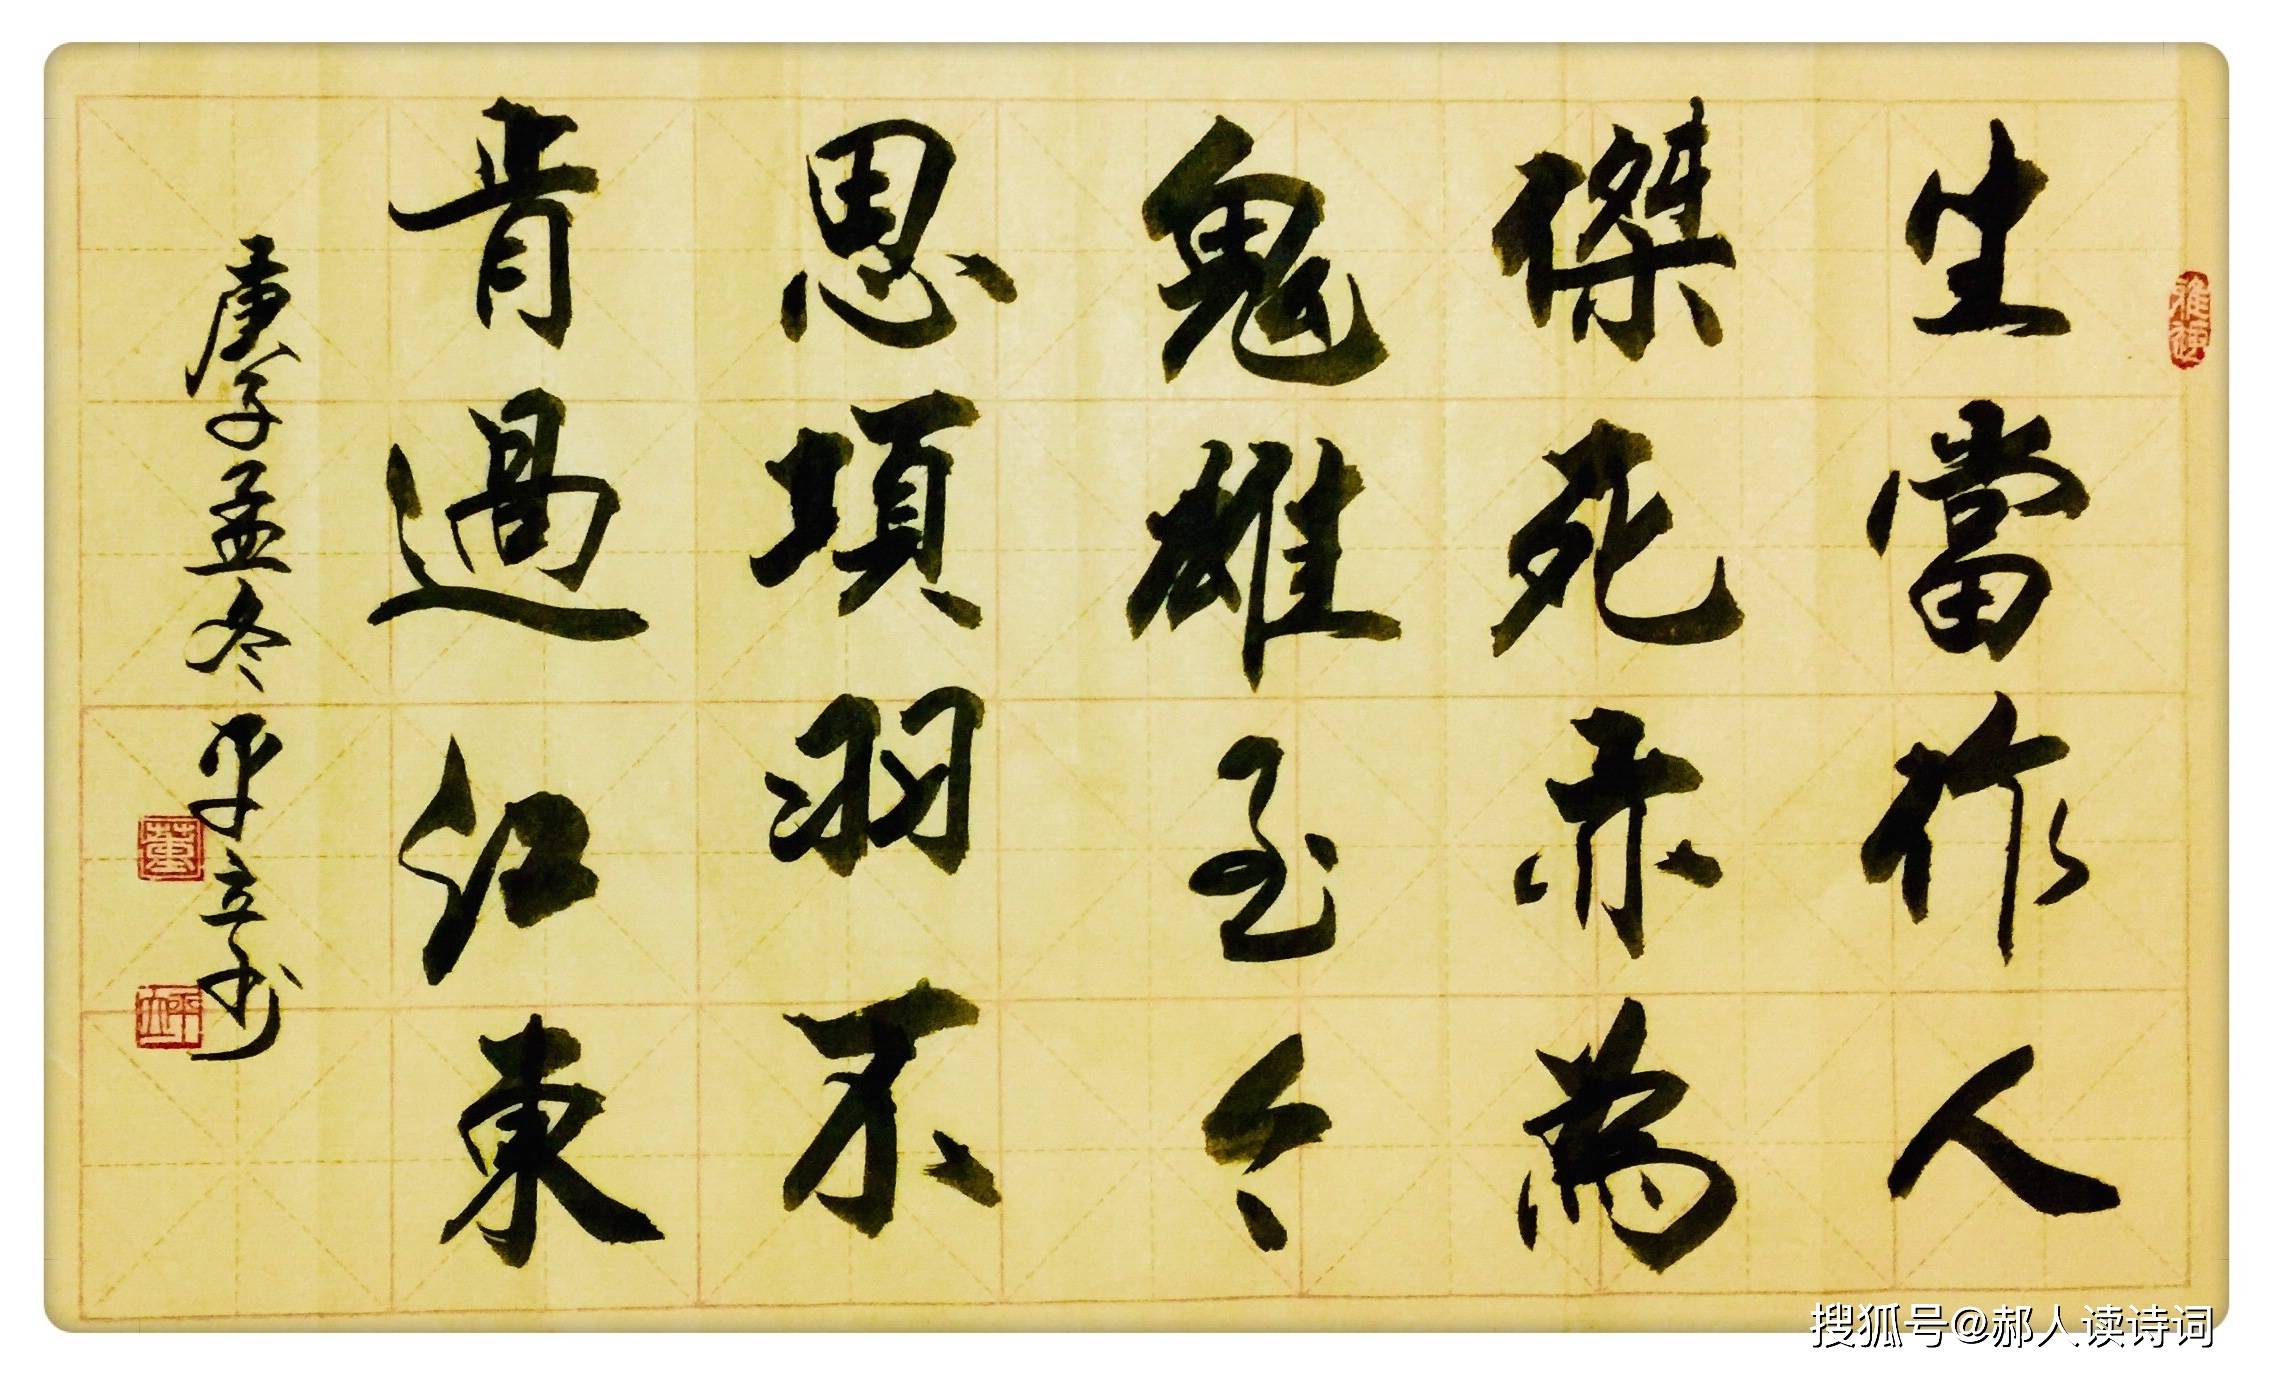 生當作人
傑死亦為
鬼雄至今
思項羽不
肯過江東
庚子孟冬平立书
搜狐号@郝人读诗词